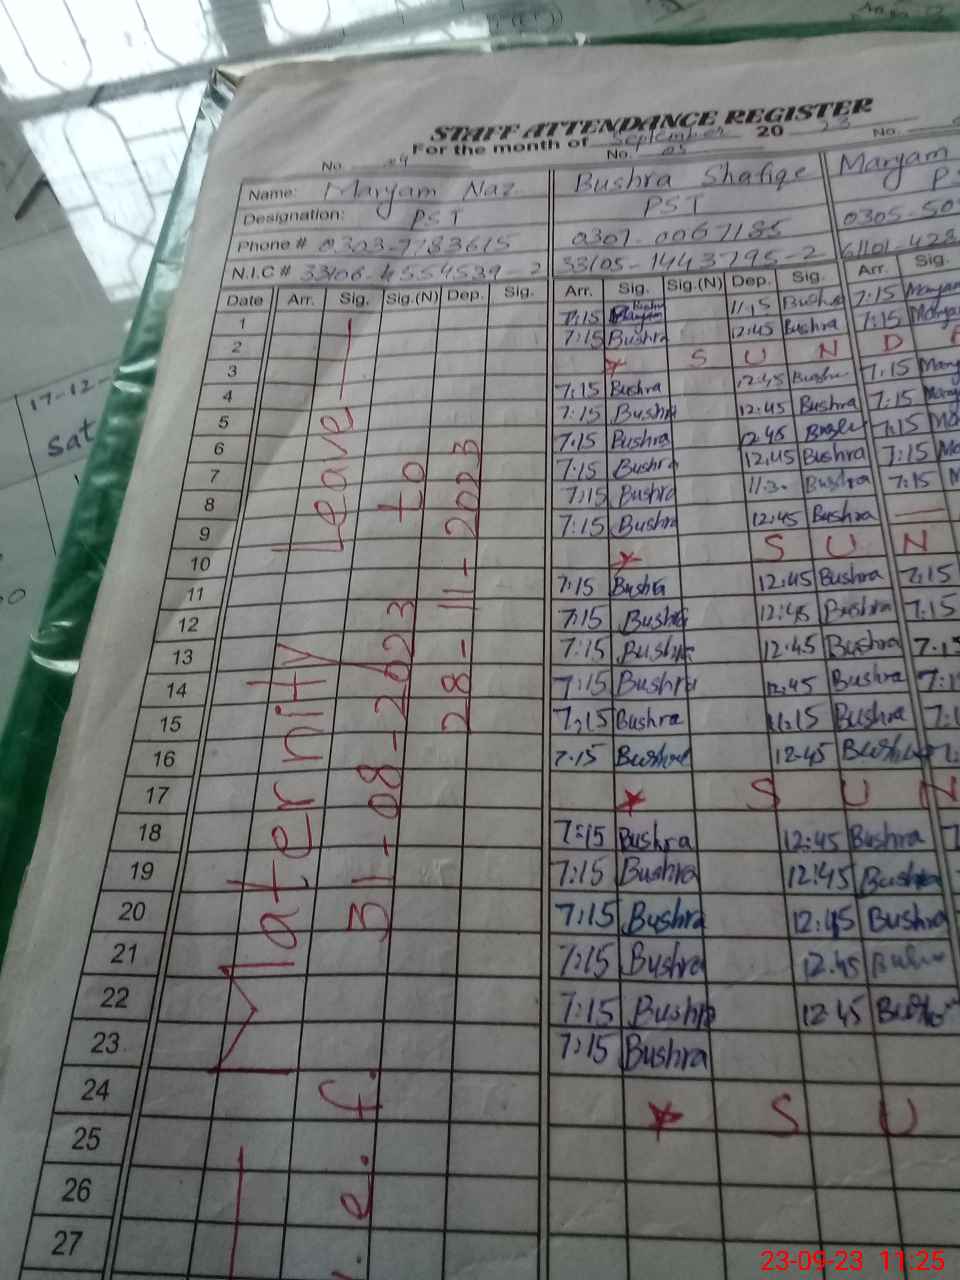 STAFF ATTENDANCE REGISTER
For the month of September 20 23
No. 04 No. 05 No.
Name: Maryam Naz Bushra Shafiqe Maryam
Designation: PST PST PS
Phone # 0303-7783615 0307-0067185 0305-50
N.I.C # 33106-4554539-2 33105-1443795-2 61101-428
Date Arr. Sig. Sig.(N) Dep. Sig. Arr. Sig. Sig.(N) Dep. Sig. Arr. Sig.
1 7:15 11:15 Bushra 7:15 Maryam
2 7:15 Bushra 12:45 Bushra 7:15
3 S U N D
4 7:15 Bushra 12:45 Bushra 7:15
5 7:15 Bushra 12:45 Bushra 7:15
6 7:15 Bushra 12:45 7:15
7 7:15 Bushra 12:45 Bushra 7:15
8 7:15 Bushra 11:30 Bushra 7:15
9 7:15 Bushra 12:45 Bushra
10 S U N
11 7:15 Bushra 12:45 Bushra 7:15
12 7:15 Bushra 12:45 Bushra 7:15
13 7:15 Bushra 12:45 Bushra 7:15
14 7:15 Bushra 12:45 Bushra 7:1
15 7:15 Bushra 11:15 Bushra 7:1
16 7:15 Bushra 12:45 Bushra 7:
17 S U N
18 7:15 Bushra 12:45 Bushra 7
19 7:15 Bushra 12:45 Bushra
20 7:15 Bushra 12:45 Bushra
21 7:15 Bushra 12:45 Bushra
22 7:15 Bushra 12:45 Bushra
23 7:15 Bushra
24 S U
25
26
27
Maternity leave
e.f. 31-08-2023 to
28-11-2023
17-12-
Sat
23-09-23 11:25